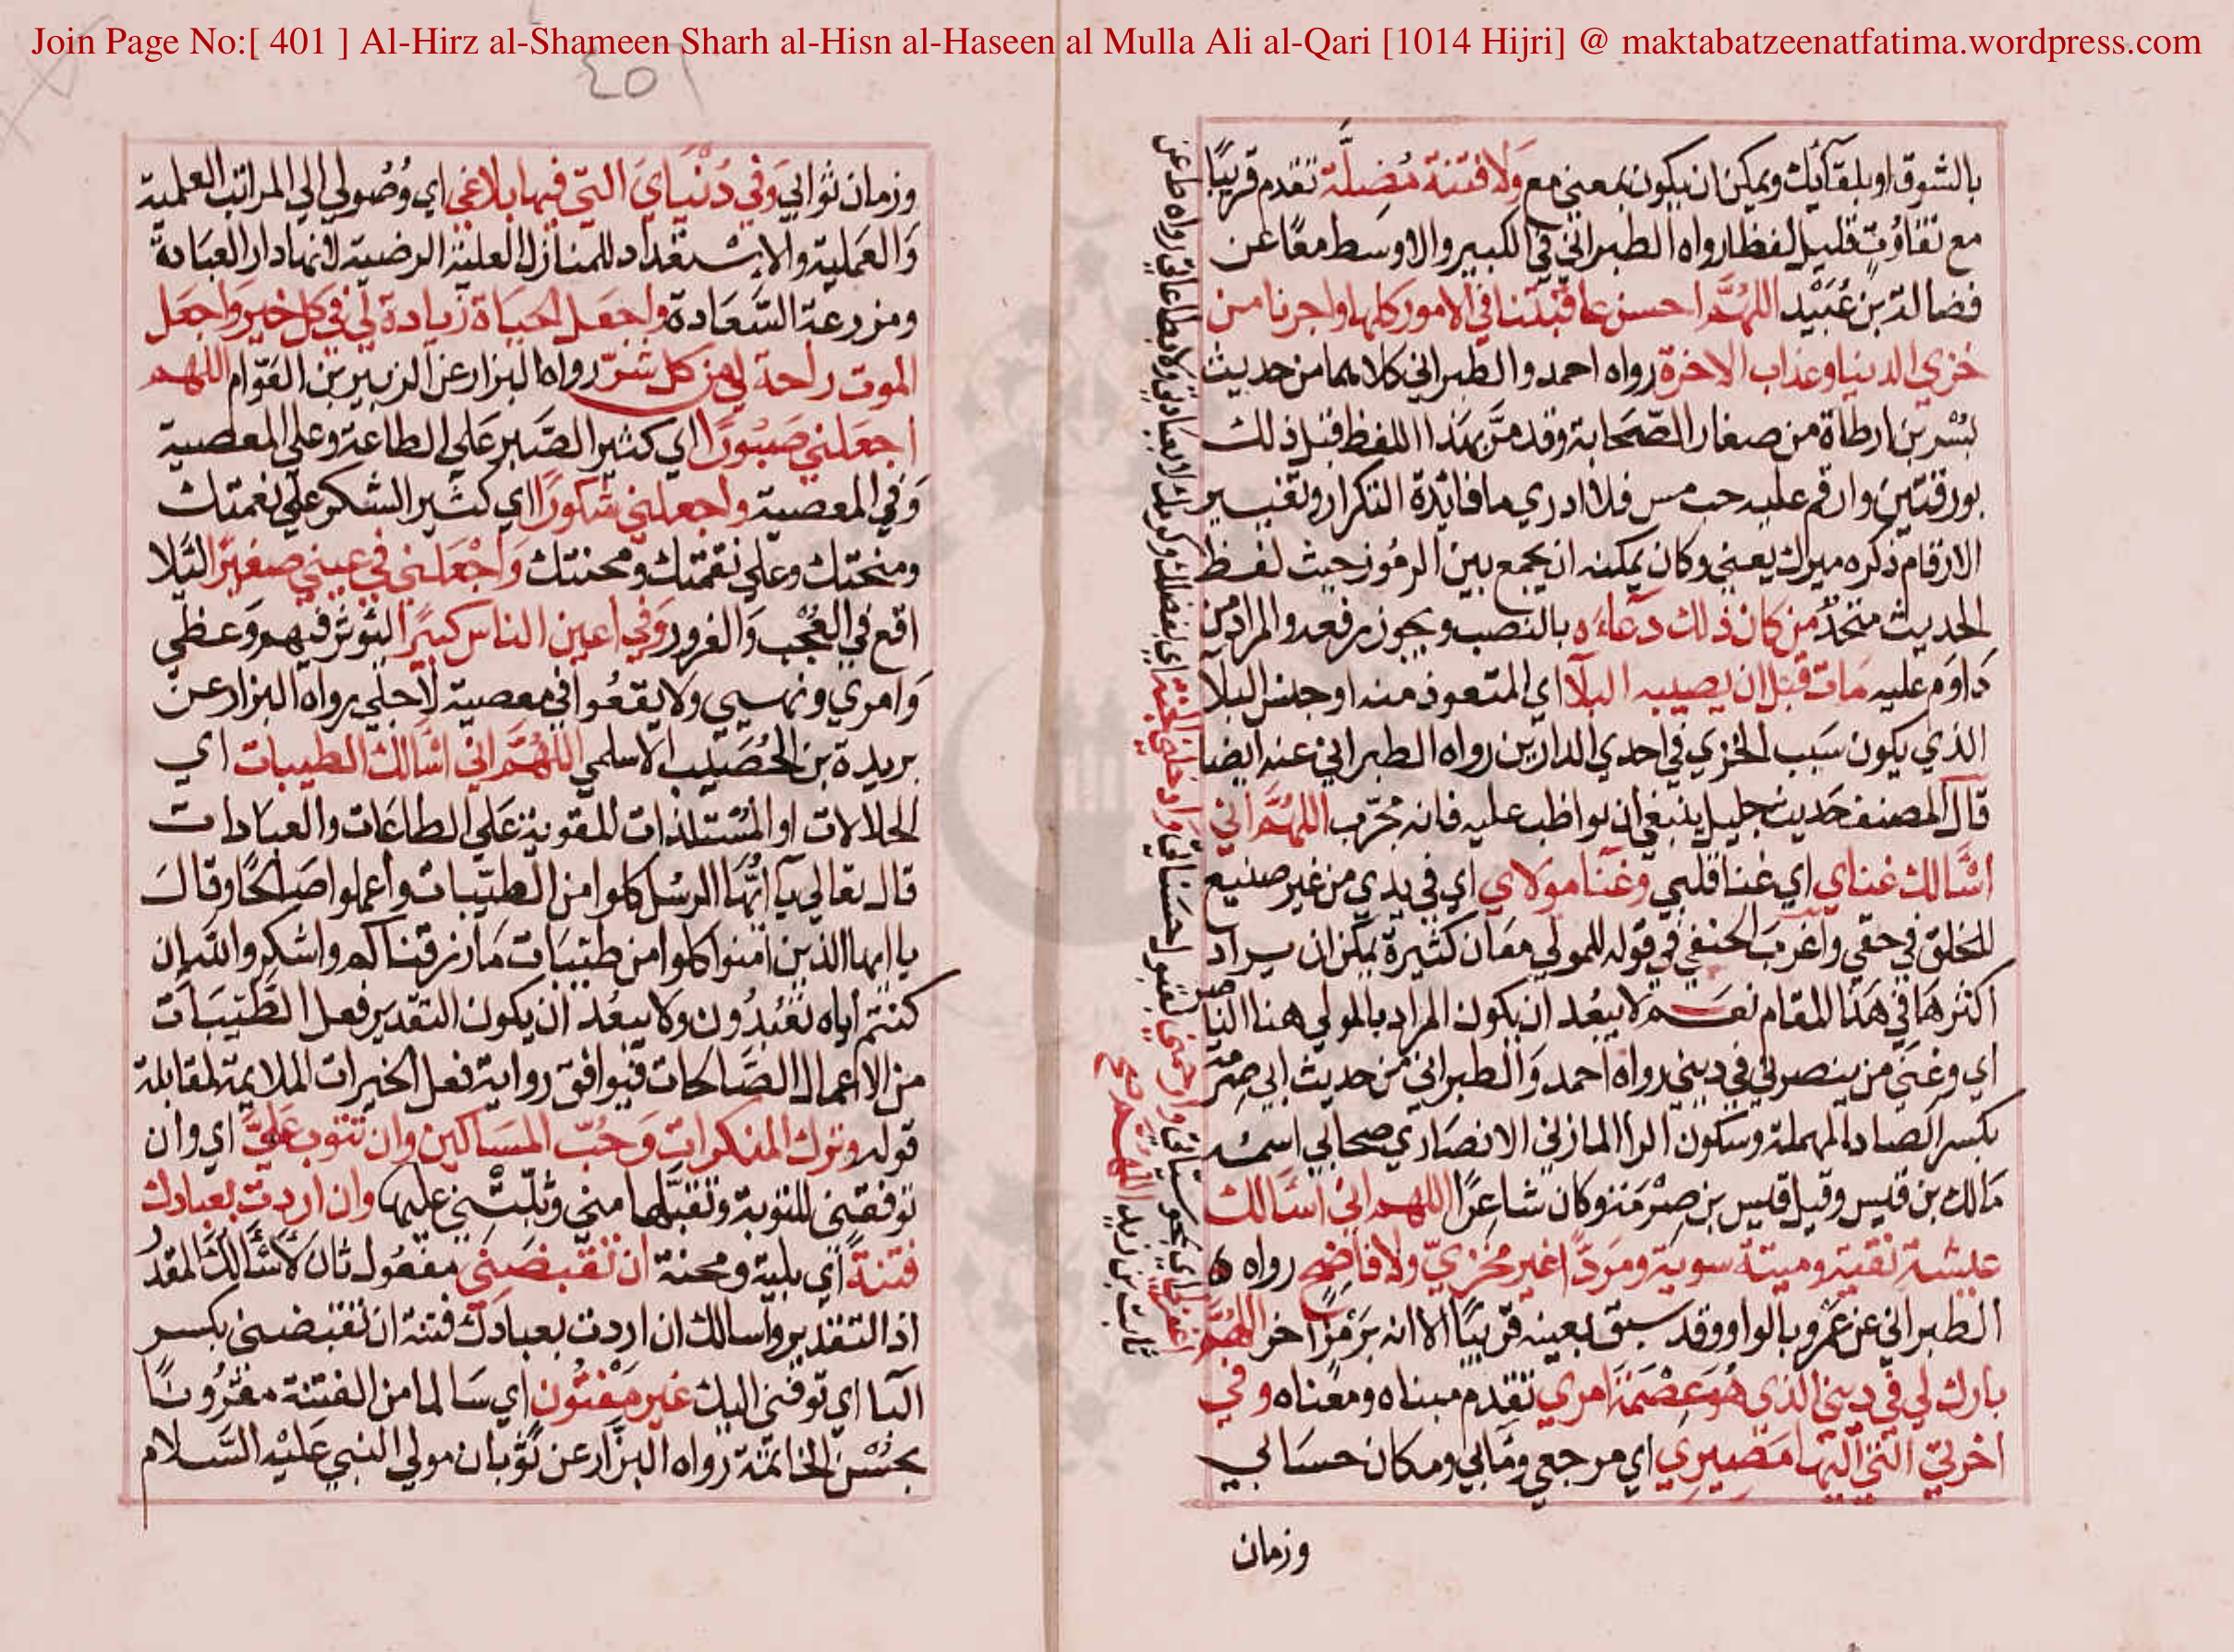 Join Page No:[ 401 ] Al-Hirz al-Shameen Sharh al-Hisn al-Haseen al Mulla Ali al-Qari [1014 Hijri] @ maktabatzeenatfatima.wordpress.com
٤٥٦
بالشوق او بلقآئك ويمكن ان يكون بمعني مع وَلا فتنة مُضِلَّة تقدم قريبًا
مع تفاوُتٍ قليل لفظا رواه الطبراني في الكبير والاوسط معًا عن
فضالة بن عُبَيْد اللهُمَّ احسن عاقبتنا في الامور كلها واجرنا من
خزي الدنيا وعذاب الاخرة رواه احمد والطبراني كلاهما من حديث
بُسْر بن ارطاة من صغار الصّحَابة وقد مرَّ بهذا اللفظ قبل ذلك
بورقتين وارقم عليه حب مس فلا ادري ما فائدة التكرار وتغيير
الارقام ذكره ميرك يعني وكان يمكنه ان يجمع بين الرموز حيث لفظ
الحديث متحدٌ من كان ذلك دعآءَه بالنصب ويجوز رفعه والمراد من
دَاوَم عليه مَات قبل ان يصيبه البلآ اي المتعوذ منه او جنس البلا
الذي يكون سَبب الخزي في احدي الدارين رواه الطبراني عنه ايضا
قال المصنف حَديث جليل ينبغي ان يواظب عليه فانه مجرّب اللهُمَّ اني
اسْالك غناي اي غنا قلبي وغنا مولاي اي في يدي من غير صنيع
للخلق في حقي واغرَبَ الحنفي في قوله للمولي معَان كثيرة يمكن ان يراد
اكثرهَا في هَذا المقام نعَم لا يبعُد ان يكون المراد بالمولي هنا النا صر
اي وغني من ينصرني في ديني رواه احمد وَالطبراني من حديث ابي صِرمة
بكسر الصاد المهملة وسكون الرا المازني الانصَاري صحابي اسمُه
مَالك بن قيس وقيل قيس بن صِرْمَة وكان شاعِرًا اللهم اني اسْالك
عيشة نقية وميتة سوية ومَردًّا غير مخزيّ ولا فاضِحٍ رواه
الطبراني عن عَمرو بالواو وقد سبق بعينه قريبًا الا انه برَمْزٍ اخر اللهُمَّ
بارك لي في ديني الذي هُوَ عِصْمَة امري تقدم مبناه ومعْناه وفي
اخرتيَ التي اليها مَصِيرِي اي مرجعي ومَآبي ومكان حسَابي
وزمان
وزمان ثوابي وَفي دُنْيَايَ التي فيها بلاغي اي وُصُولي الي المراتب العلمية
وَالعَملية والاسْتعداد للمنازل العلية الرضية لانها دار العبَادة
ومزرعة السَّعَادة واجعَل الحيَاة زيادة لي في كل خير واجعَل
الموت راحة لي من كل شرّ رواه البزار عن الزبير بن العَوّام اللهم
اجعَلني صَبُورًا اي كثير الصَّبر عَلي الطاعة وعلي المعصية
وَفي المعصية واجعلني شكورًا اي كثير الشكر علي نعمتك
ومنحتك وعلي نقمتك ومحنتك وَاجْعَلني في عيني صغيرًا لئلا
اقع في العُجْب وَالغرور وَفي اعين الناس كبيرًا ليُوثر فيهم وَعظي
وَامري ونهيي ولا يقعُوا في معصية لاجلي رواه البزار عن
بريدة بن الحُصَيب الاسلمي اللهُمَّ اني اسْالك الطيبات اي
الحلالات او المُسْتلذات المقوية عَلي الطاعَات والعبادات
قال تعالي يآ ايُّهَا الرسُل كلوا من الطيّبات واعملوا صَالحًا وقالَ
يا ايها الذين امنوا كلوا من طيّبَات مَا رزقناكم واشكروا لله ان
كنتم اياه تعْبُدُون ولا يبعُد ان يكون التقدير فعل الطيّبَات
من الاعمال الصَّالحات فيوافق رواية فعل الخيرات الملايمة لمقابلة
قوله وترك المنكرات وَحُبّ المسَاكين وان تتوب عَليَّ اي وان
توفقني للتوبة وتقبَّلها مني وتُثبّتْني عليها وان اردت بعبادك
فتنةً اي بلية ومحنة ان تقبضَنِي مفعُول ثان لاسْالك المقدر
اذ التقدير واسالك ان اردت بعبادك فتنة ان تقبضني بكسر
البا اي توفني اليك غير مَفتُون اي سَالما من الفتنة مقرُونًا
بحُسْن الخاتمَة رواه البزّار عن ثَوبان مولي النبي عَليْه السَّلام